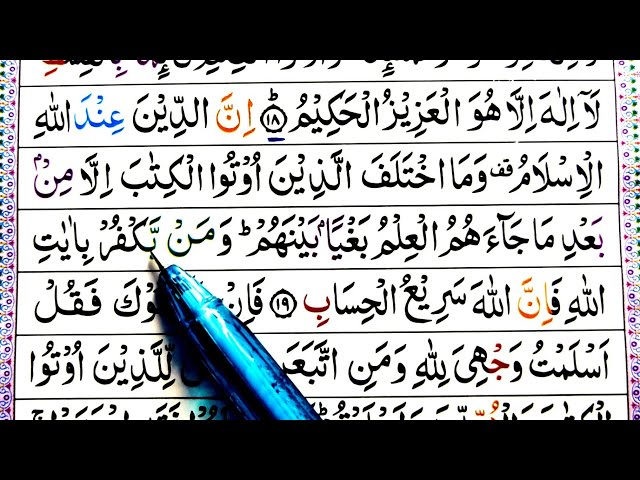 لَاۤ اِلٰهَ اِلَّا هُوَ الْعَزِيْزُ الْحَكِيْمُ ؕ ۱۸ اِنَّ الدِّيْنَ عِنْدَ اللّٰهِ
الْاِسْلَامُ قف وَمَا اخْتَلَفَ الَّذِيْنَ اُوْتُوا الْكِتٰبَ اِلَّا مِنْۢ
بَعْدِ مَا جَآءَهُمُ الْعِلْمُ بَغْيًاۢ بَيْنَهُمْ ؕ وَمَنْ يَّكْفُرْ بِاٰيٰتِ
اللّٰهِ فَاِنَّ اللّٰهَ سَرِيْعُ الْحِسَابِ ۱۹ فَاِنْ وْكَ فَقُلْ
اَسْلَمْتُ وَجْهِيَ لِلّٰهِ وَمَنِ اتَّبَعَنِ لِّلَّذِيْنَ اُوْتُوا